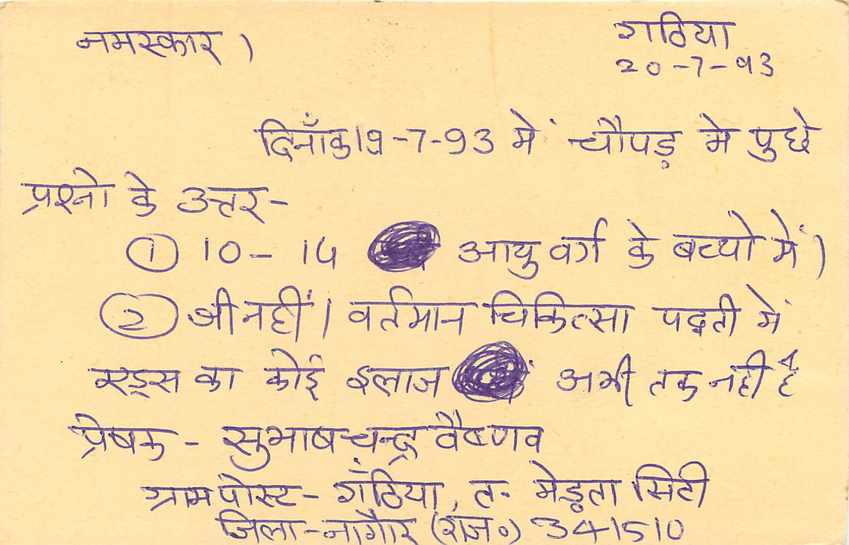 नमस्कार।
गठिया
20-7-93
दिनाँक 19-7-93 में चौपड़ मे पुछे
प्रश्नो के उत्तर-
① 10-14 आयु वर्ग के बच्चो में।
② जी नहीं। वर्तमान चिकित्सा पद्वती में
एड्स का कोई इलाज अभी तक नही है
प्रेषक - सुभाषचन्द्र वैष्णव
ग्रामपोस्ट - गँठिया, त- मेड़ता सिटी
जिला-नागौर (राज॰) 341510